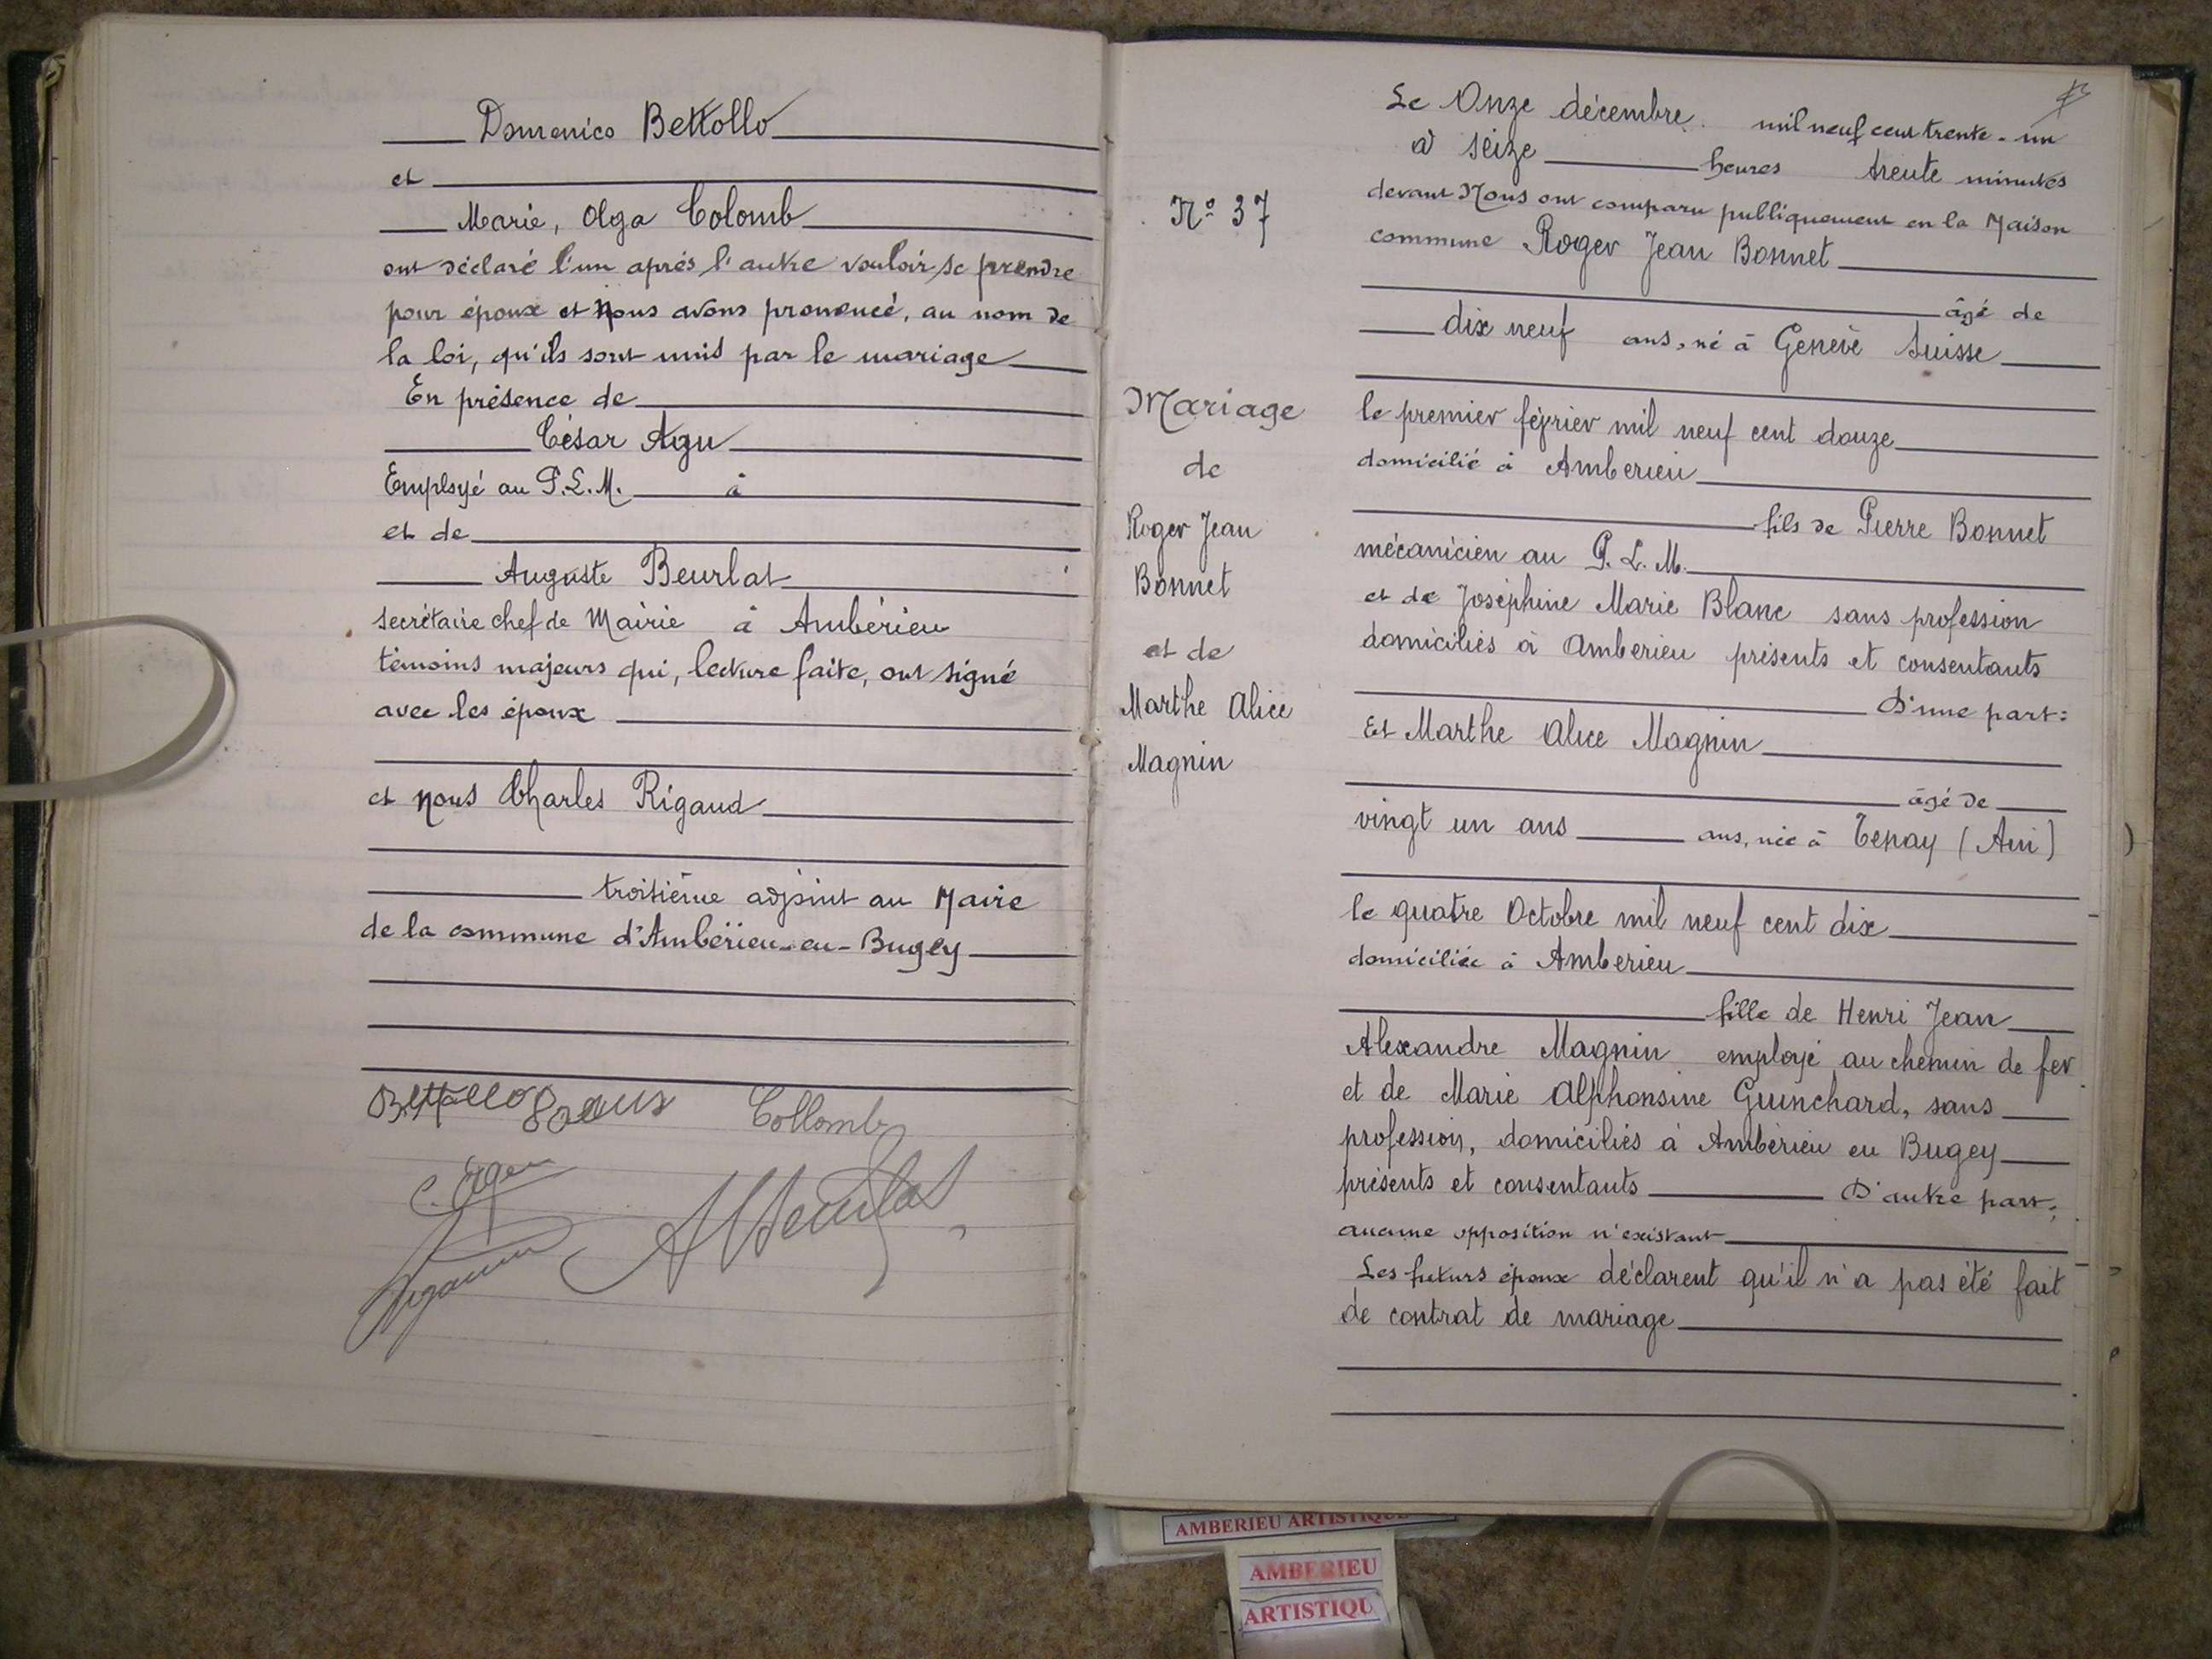 Domenico Bettollo
et
Marie, Olga Colomb
ont déclaré l'un après l'autre vouloir se prendre
pour époux et Nous avons prononcé, au nom de
la loi, qu'ils sont unis par le mariage
En présence de
César Agu
Employé au P.L.M. à
et de
Auguste Beurlat
secrétaire chef de Mairie à Ambérieu
témoins majeurs qui, lecture faite, ont signé
avec les époux
et nous Charles Rigaud
troisième adjoint au Maire
de la commune d'Ambérieu-en-Bugey
Bettollo Collomb
C. Agu
ABeurlat
Rigaud
Le Onze décembre mil neuf cent trente-un
à seize heures trente minutes
devant Nous ont comparu publiquement en la Maison
commune Roger Jean Bonnet
âgé de
dix neuf ans, né à Genève Suisse
le premier février mil neuf cent douze
domicilié à Amberieu
fils de Pierre Bonnet
mécanicien au P.L.M.
et de Joséphine Marie Blanc sans profession
domiciliés à Amberieu présents et consentants
D'une part:
Et Marthe Alice Magnin
âgé de
vingt un ans ans, née à Tenay (Ain)
le quatre Octobre mil neuf cent dix
domiciliée à Amberieu
fille de Henri Jean
Alexandre Magnin employé au chemin de fer
et de Marie Alphonsine Guinchard, sans
profession, domiciliés à Ambérieu en Bugey
présents et consentants D'autre part;
aucune opposition n'existant
Les futurs époux déclarent qu'il n'a pas été fait
de contrat de mariage
N° 37
Mariage
de
Roger Jean
Bonnet
et de
Marthe Alice
Magnin
AMBERIEU ARTISTIQUE
AMBERIEU
ARTISTIQU